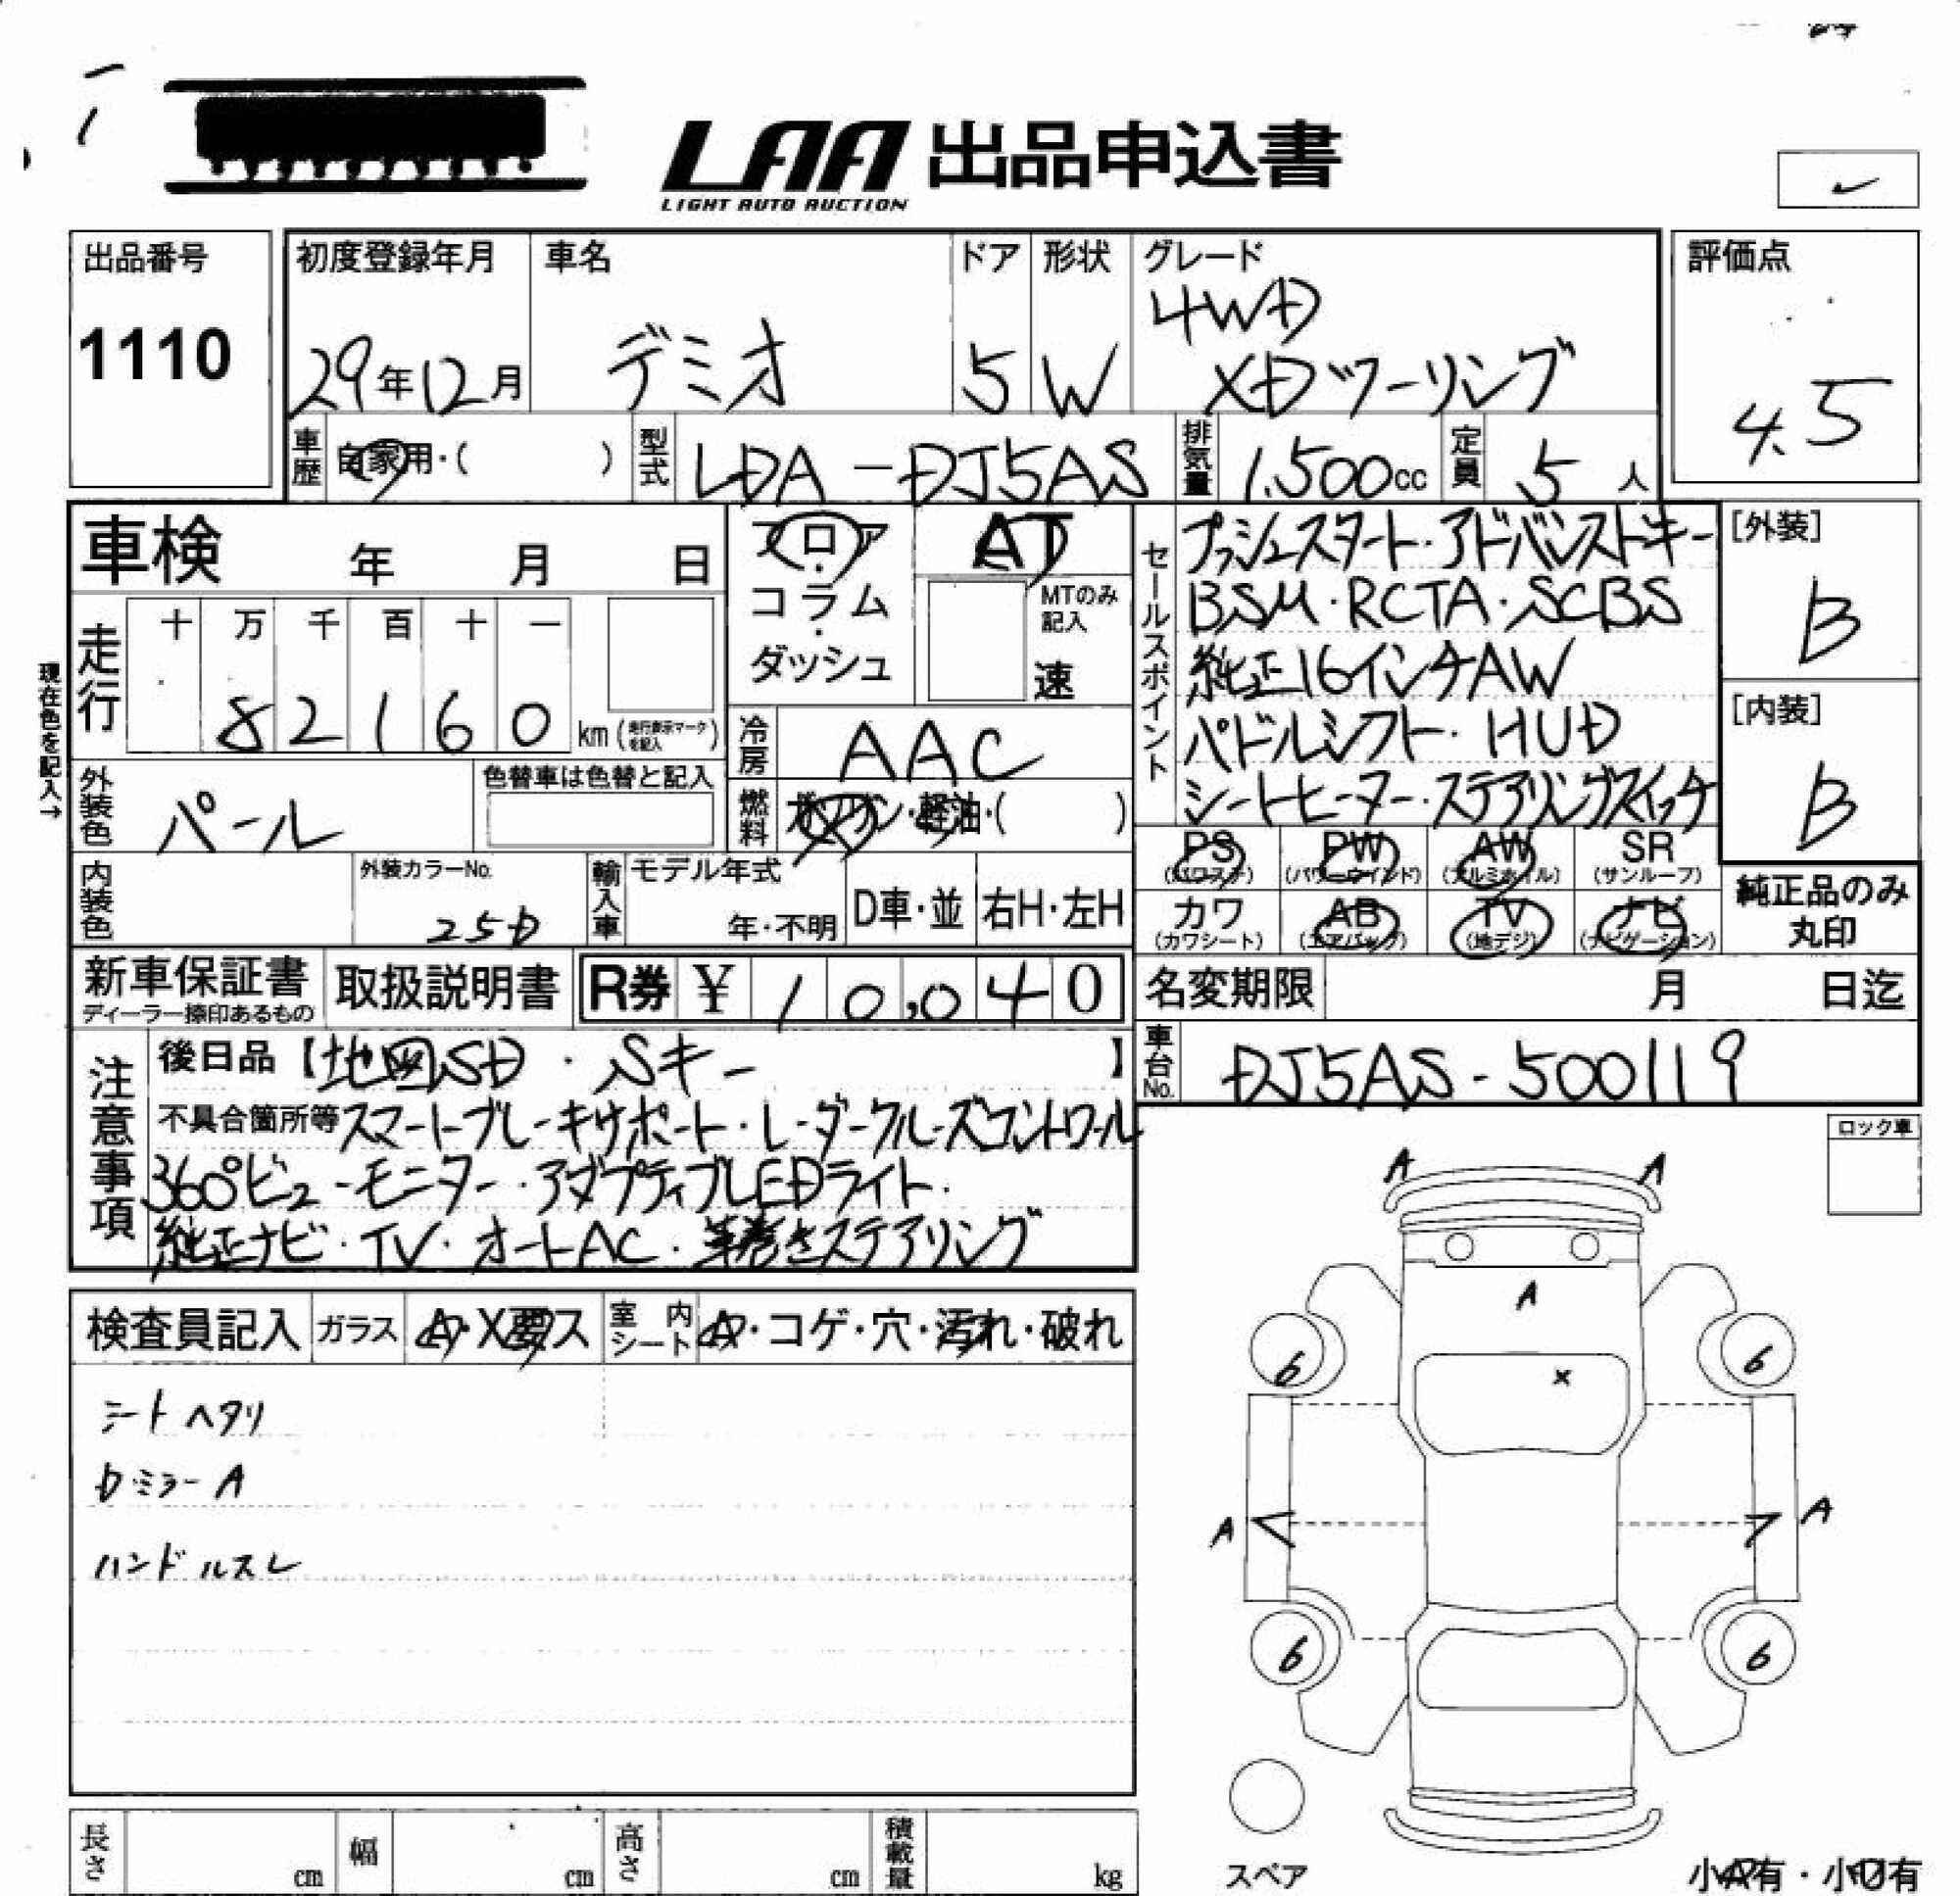 LAA 出品申込書
LIGHT AUTO AUCTION
出品番号
1110
初度登録年月
29年12月
車名
デミオ
ドア
5
形状
W
グレード
4WD
XDツーリング
評価点
4.5
車歴
自家用・( )
型式
LDA-DJ5AS
排気量
1,500cc
定員
5人
車検 年 月 日
フロア・コラム・ダッシュ
AT
MTのみ記入
速
セールスポイント
プッシュスタート・アドバンストキー
BSM・RCTA・SCBS
純正16インチAW
パドルシフト・HUD
シートヒーター・ステアリングスイッチ
[外装]
B
[内装]
B
現在色を記入→
走行
十 万 千 百 十 一
8 2 1 6 0 km (走行表示マークを記入)
冷房
AAC
外装色
パール
色替車は色替と記入
燃料
ガソリン・軽油・( )
PS
(パワステ)
PW
(パワーウインド)
AW
(アルミホイル)
SR
(サンルーフ)
カワ
(カワシート)
AB
(エアバッグ)
TV
(地デジ)
ナビ
(ナビゲーション)
純正品のみ
丸印
内装色
外装カラーNo.
25D
輸入車
モデル年式
年・不明
D車・並
右H・左H
新車保証書
ディーラー捺印あるもの
取扱説明書
R券 ¥ 10,040
名変期限 月 日迄
車台No.
DJ5AS-500119
注意事項
後日品【地図SD・Sキー】
不具合箇所等 スマートブレーキサポート・レーダークルーズコントロール
360°ビューモニター・アダプティブLEDライト.
純正ナビ・TV・オートAC・革巻きステアリング
ロック車
検査員記入
ガラス
A・X要ス
室内シート
A・コゲ・穴・汚れ・破れ
シートヘタリ
Dミラー A
ハンドルスレ
A A
A
6 6
x
A A
6 6
スペア
小A有・小U有
長さ cm
幅 cm
高さ cm
積載量 kg